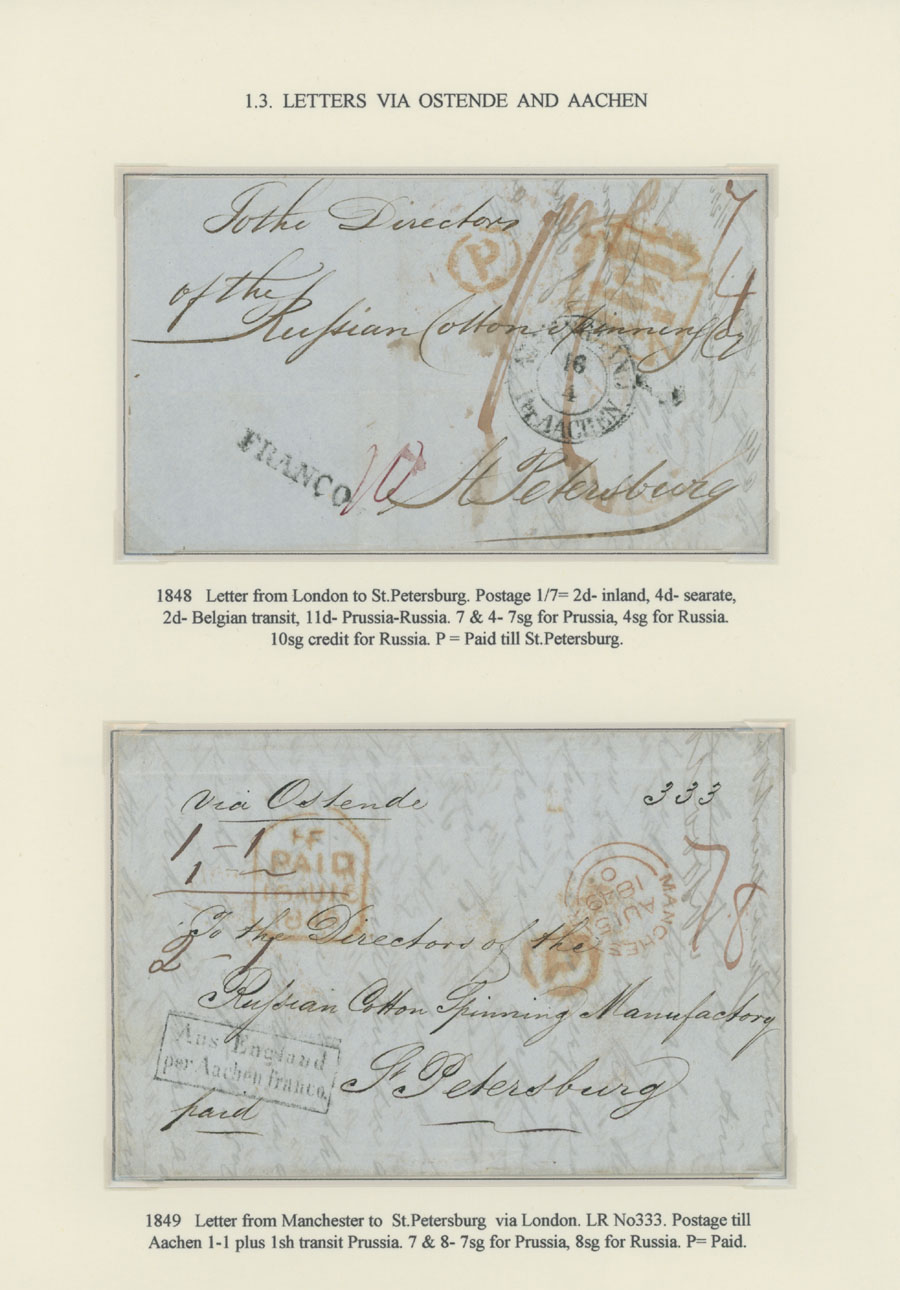 1.3. LETTERS VIA OSTENDE AND AACHEN
To the Directors
P
7
of the
4
Russian Cotton Spinning Co
16
4
Per AACHEN
FRANCO
10
St Petersburg
1848 Letter from London to St.Petersburg. Postage 1/7= 2d- inland, 4d- searate,
2d- Belgian transit, 11d- Prussia-Russia. 7 & 4- 7sg for Prussia, 4sg for Russia.
10sg credit for Russia. P = Paid till St.Petersburg.
via Ostende
333
1-1
1-
PAID
7
8
MANCHES
AU15
1849
To the Directors of the
2-
P
Russian Cotton Spinning Manufactory
Aus England
per Aachen franco.
St Petersburg
paid
1849 Letter from Manchester to St.Petersburg via London. LR No333. Postage till
Aachen 1-1 plus 1sh transit Prussia. 7 & 8- 7sg for Prussia, 8sg for Russia. P= Paid.